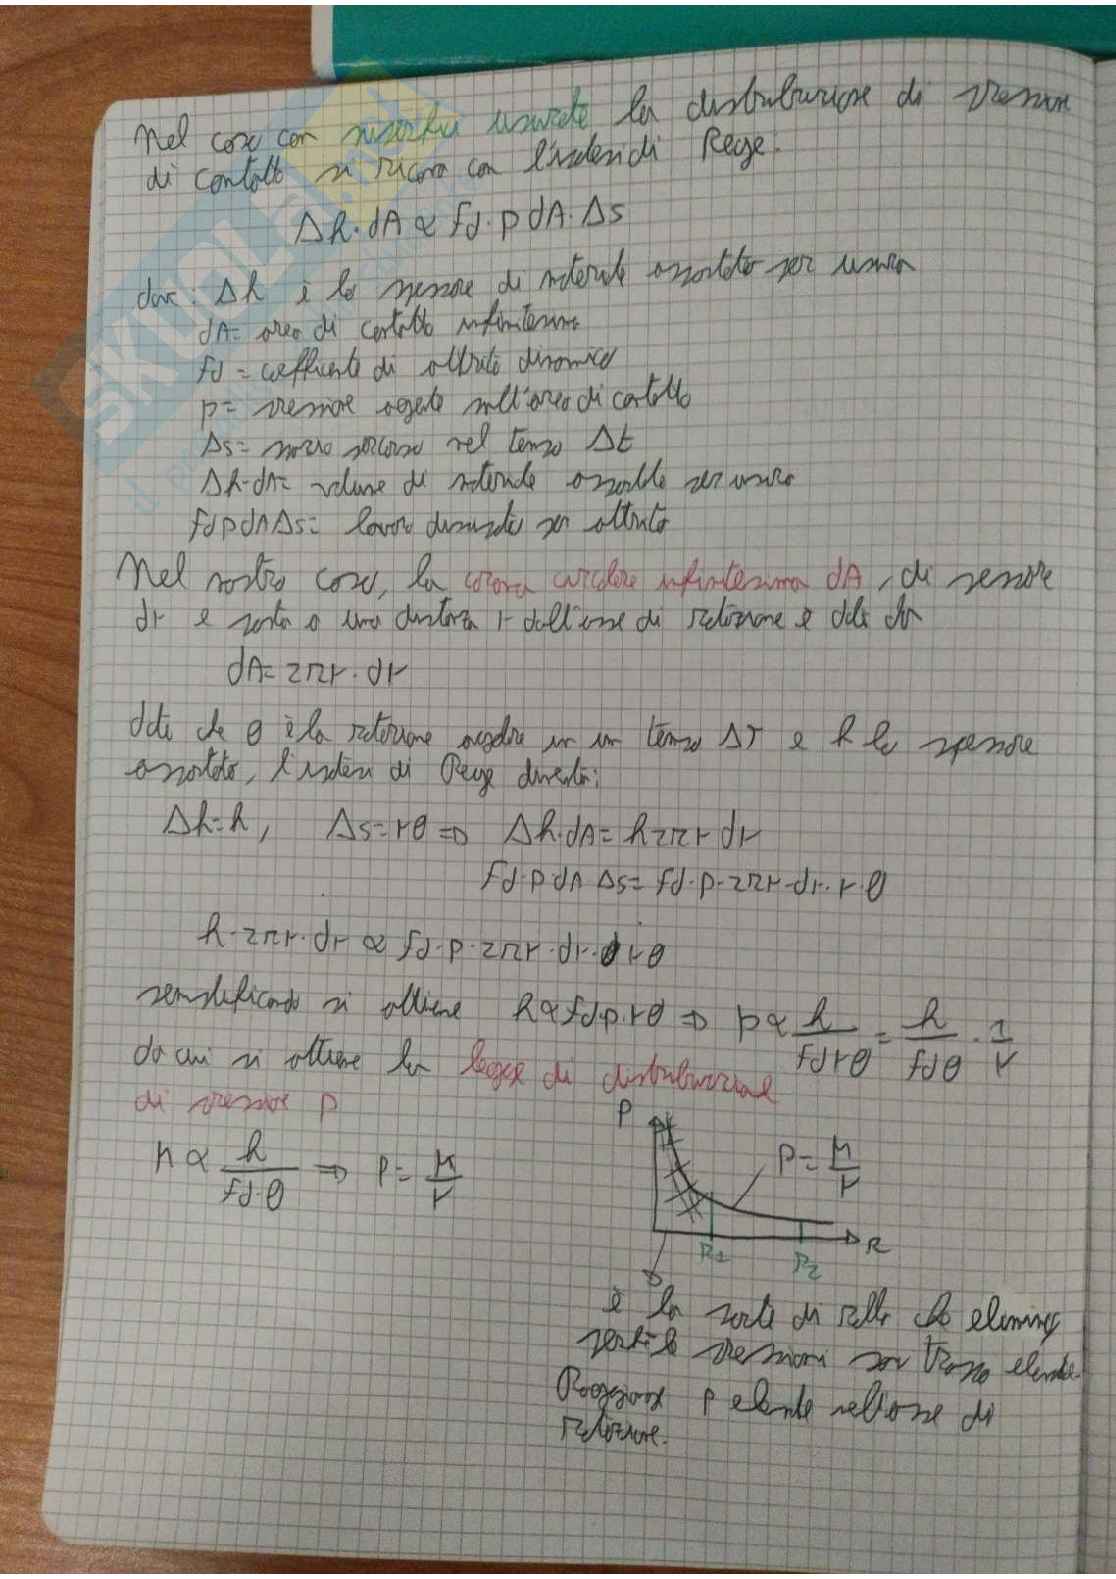 Nel caso con superfici usurate la distribuzione di pressione
di contatto si ricava con l'ipotesi di Reye:
Δh·dA ∝ fd·p dA·Δs
dove: Δh è lo spessore di materiale asportato per usura
dA= area di contatto infinitesima
fd = coefficiente di attrito dinamico
p= pressione agente sull'area di contatto
Δs= spazio percorso nel tempo Δt
Δh·dA= volume di materiale asportato per usura
fd p dA Δs= lavoro dissipato per attrito
Nel nostro caso, la corona circolare infinitesima dA, di spessore
dr e posta a una distanza r dall'asse di rotazione è data da
dA= 2πr·dr
dato che θ è la rotazione angolare in un tempo ΔT e h lo spessore
asportato, l'ipotesi di Reye diventa:
Δh=h, Δs=rθ ⇒ Δh·dA= h2πr dr
fd·p·dA Δs= fd·p·2πr·dr·r·θ
h·2πr·dr ∝ fd·p·2πr·dr·rθ
semplificando si ottiene h∝fd·p·rθ ⇒ p∝ h/fdrθ = h/fdθ · 1/r
da cui si ottiene la legge di distribuzione
di pressione p
k ∝ h/fd·θ ⇒ p= k/r
P
p= k/r
R
R1
R2
è la parte di
che
perché le pressioni son troppo elevate.
p elevate nell'asse di
rotazione.
SKUOLA